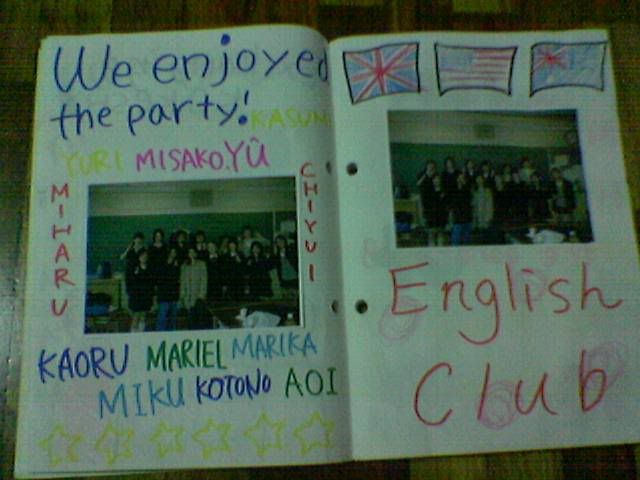 We enjoyed
the party!
KASUMI
YURI MISAKO YÛ
MIHARU
CHIYUI
KAORU MARIEL MARIKA
MIKU KOTONO AOI
English
Club